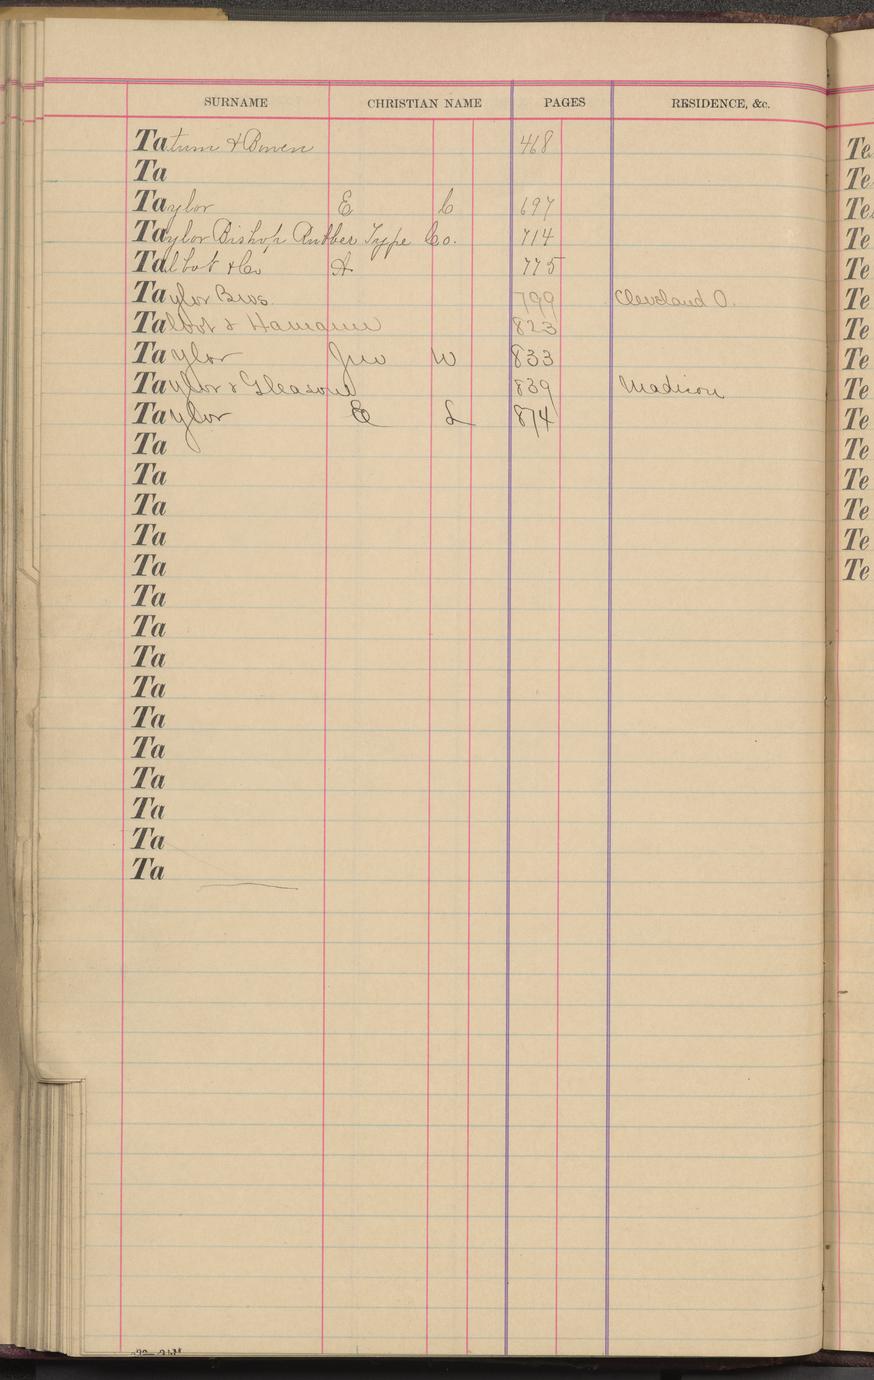 SURNAME CHRISTIAN NAME PAGES RESIDENCE, &c.
Tatum & Bowen 468
Ta
Taylor E C 697
Taylor Bishop Rubber Type Co. 714
Talbot & Co A 775
Taylor Bros. 799 Cleveland O.
Talbot & Hamann 823
Taylor Jno W 833
Taylor & Gleason 839 Madison
Taylor E L 874
Ta
Ta
Ta
Ta
Ta
Ta
Ta
Ta
Ta
Ta
Ta
Ta
Ta
Ta
Ta
Te
Te
Te
Te
Te
Te
Te
Te
Te
Te
Te
Te
Te
Te
Te